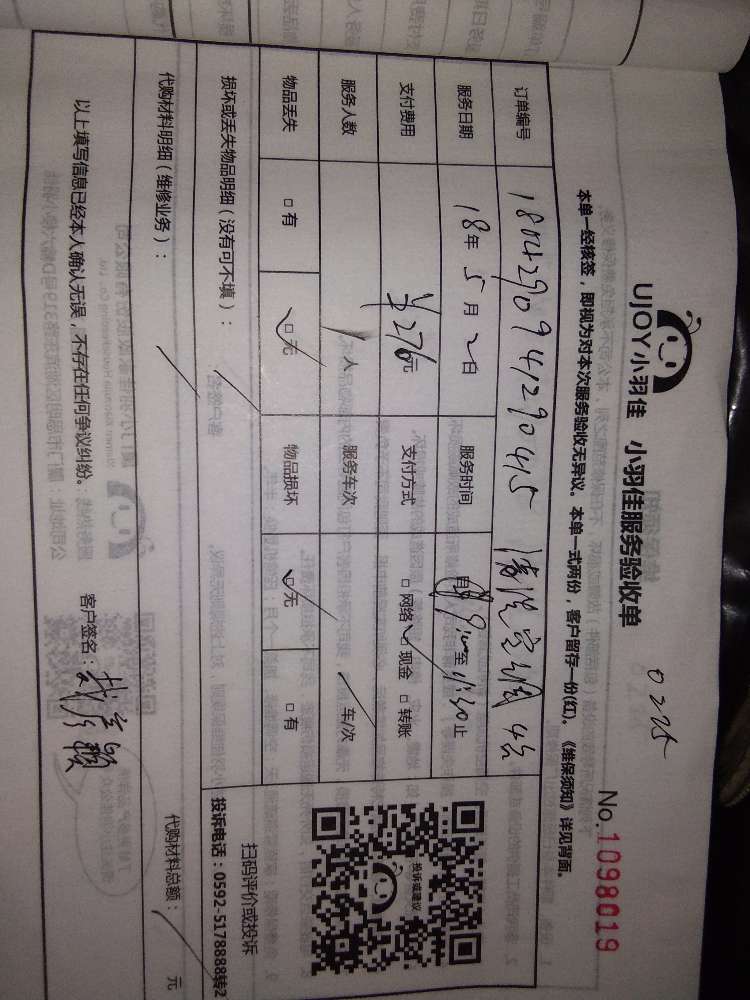 UJOY小羽佳 小羽佳服务验收单
0225
No.1098019
本单一经核签，即视为对本次服务验收无异议。本单一式两份，客户留存一份(红)。《维保须知》详见背面。
订单编号 180429094129045 清洗空调4台
服务日期 18年5月2日 服务时间 9:00至11:30止
支付费用 ¥276元 支付方式 □网络 ☑现金 □转账
服务人数 1人 服务车次 / 车/次
物品丢失 □有 ☑无 物品损坏 ☑无 □有
损坏或丢失物品明细（没有可不填）： /
扫码评价或投诉
投诉电话：0592-5178888转2
投诉或建议
代购材料明细（维修业务）： /
代购材料总额： / 元
以上填写信息已经本人确认无误，不存在任何争议纠纷。
客户签名：